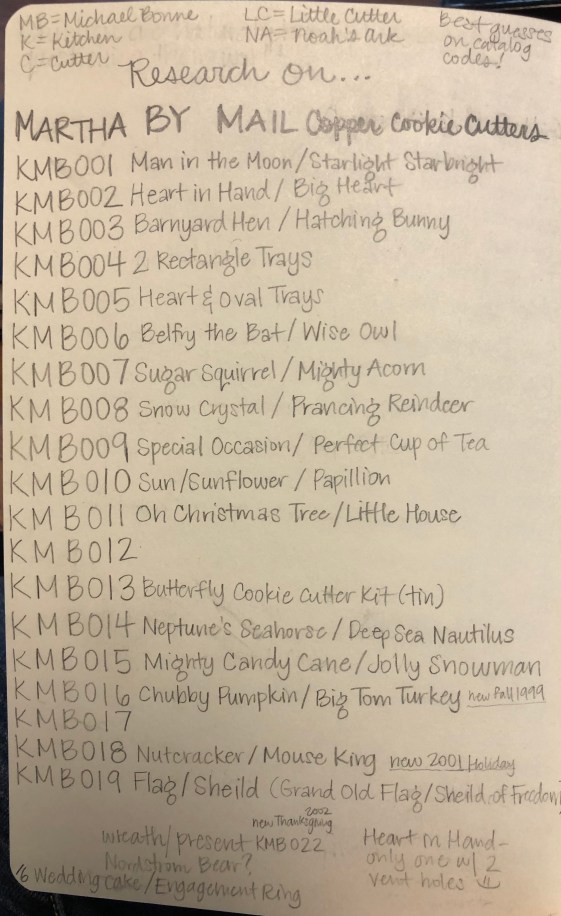 MB = Michael Bonne
K = Kitchen
C = Cutter
LC = Little Cutter
NA = Noah's Ark
Best guesses
on catalog
codes!
Research on...
MARTHA BY MAIL Copper Cookie Cutters
KMB001 Man in the Moon/Starlight Starbright
KMB002 Heart in Hand/ Big Heart
KMB003 Barnyard Hen / Hatching Bunny
KMB004 2 Rectangle Trays
KMB005 Heart & Oval Trays
KMB006 Belfry the Bat/ Wise Owl
KMB007 Sugar Squirrel / Mighty Acorn
KMB008 Snow Crystal / Prancing Reindeer
KMB009 Special Occasion/ Perfect Cup of Tea
KMB010 Sun/Sunflower / Papillion
KMB011 Oh Christmas Tree/Little House
KMB012
KMB013 Butterfly Cookie Cutter Kit (tin)
KMB014 Neptune's Seahorse/ Deep Sea Nautilus
KMB015 Mighty Candy Cane/Jolly Snowman
KMB016 Chubby Pumpkin/Big Tom Turkey new Fall 1999
KMB017
KMB018 Nutcracker/Mouse King new 2001 Holiday
KMB019 Flag/Sheild (Grand Old Flag/Sheild of Freedom)
2002
new Thanksgiving
wreath/present KMB022
Nordstrom Bear?
Wedding Cake/Engagement Ring
Heart in Hand-
only one w/ 2
vent holes